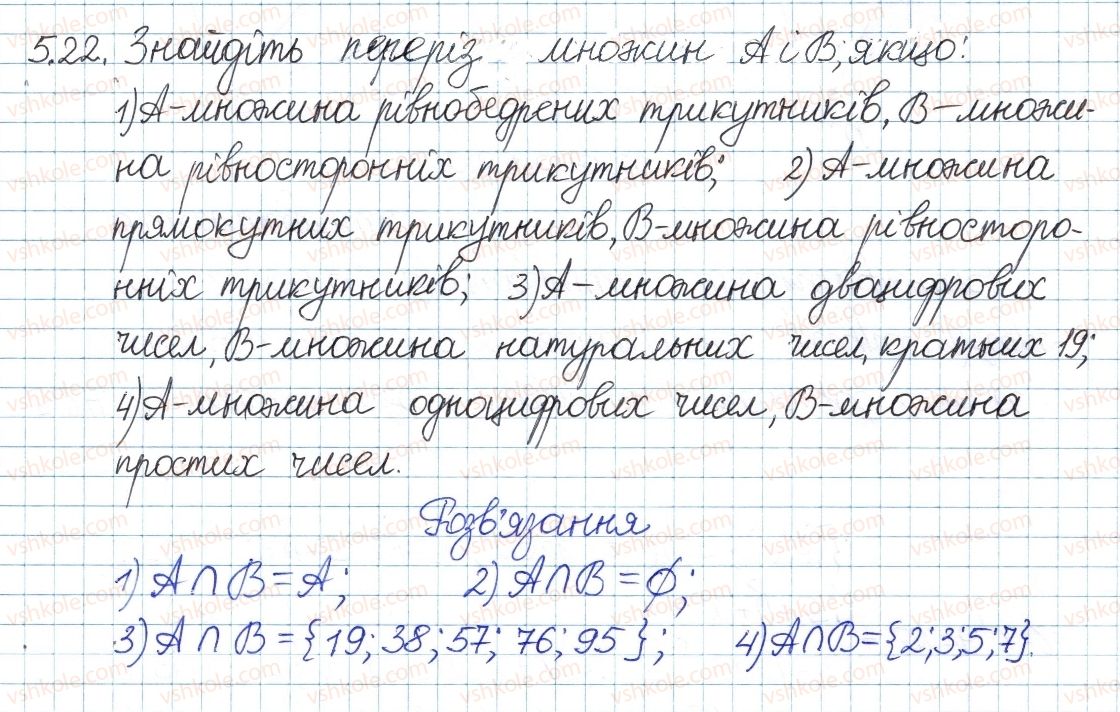 5.22. Знайдіть переріз множин A і B, якщо:
1) A-множина рівнобедрених трикутників, B-множи-
на рівносторонніх трикутників; 2) A-множина
прямокутних трикутників, B-множина рівносторо-
нніх трикутників; 3) A-множина двоцифрових
чисел, B-множина натуральних чисел, кратних 19;
4) A-множина одноцифрових чисел, B-множина
простих чисел.
Розв'язання
1) A ∩ B = A; 2) A ∩ B = ∅;
3) A ∩ B = {19; 38; 57; 76; 95}; 4) A ∩ B = {2; 3; 5; 7}.